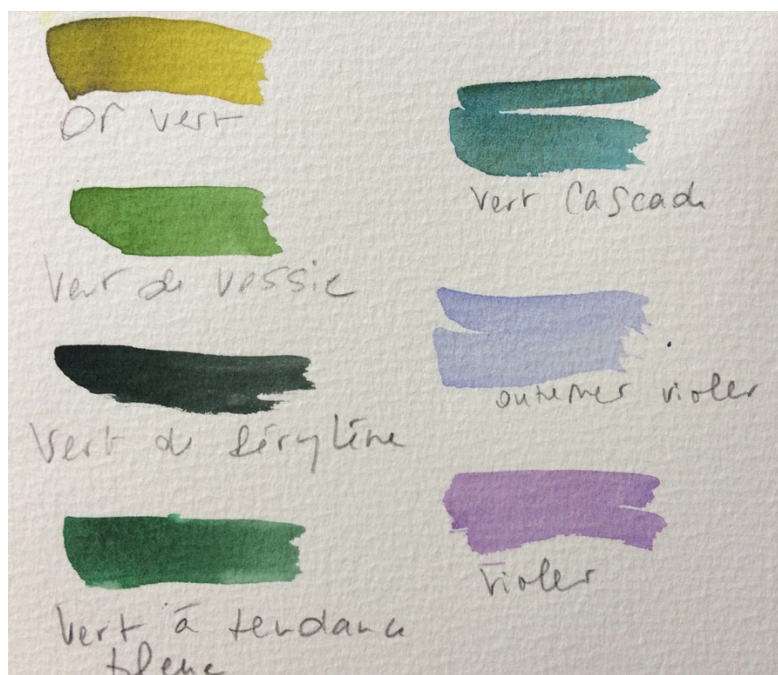 Or vert
Vert de vessie
Vert de pérylène
Vert à tendance
bleue
Vert Cascade
outremer violet
violet